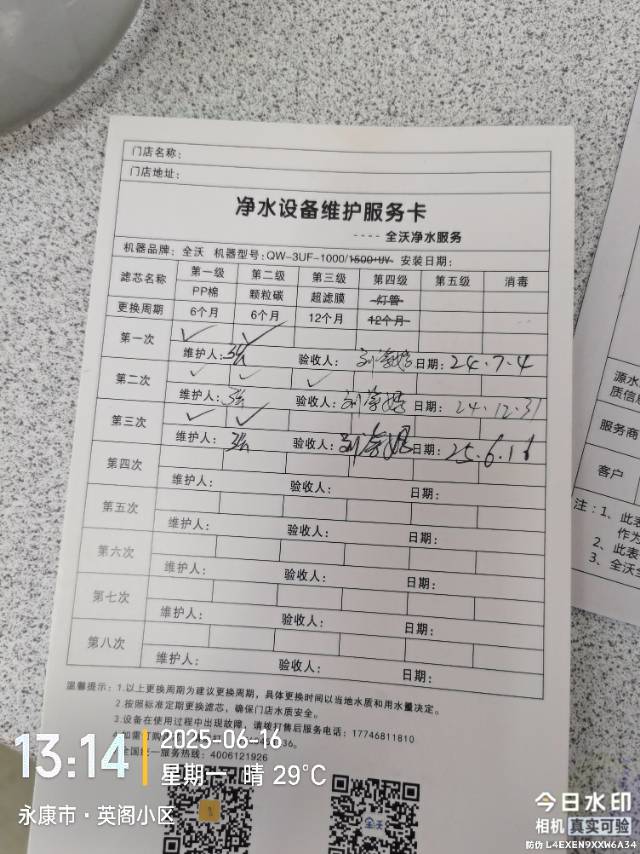 门店名称：
门店地址：
净水设备维护服务卡
----全沃净水服务
机器品牌：全沃 机器型号：QW-3UF-1000/1500+UV 安装日期：
滤芯名称 第一级 第二级 第三级 第四级 第五级 消毒
PP棉 颗粒碳 超滤膜 灯管
更换周期 6个月 6个月 12个月 12个月
第一次 ✓ ✓
维护人：张 验收人： 日期：24.7.4
第二次 ✓ ✓ ✓
维护人：张 验收人： 日期：24.12.31
第三次 ✓ ✓
维护人：张 验收人： 日期：25.6.16
第四次
维护人： 验收人： 日期：
第五次
维护人： 验收人： 日期：
第六次
维护人： 验收人： 日期：
第七次
维护人： 验收人： 日期：
第八次
维护人： 验收人： 日期：
温馨提示：1.以上更换周期为建议更换周期，具体更换时间以当地水质和用水量决定。
2.按照标准定期更换滤芯，确保门店水质安全。
3.设备在使用过程中出现故障，请拨打售后服务电话：17746811810
全国统一服务热线：4006121926
源水
质信息
服务商
客户
注：1、此表
作为
2、此表
3、全沃
13:14
2025-06-16
星期一 晴 29°C
永康市·英阁小区
全沃
今日水印
相机 真实可验
防伪 L4EXEN9XXW6A34